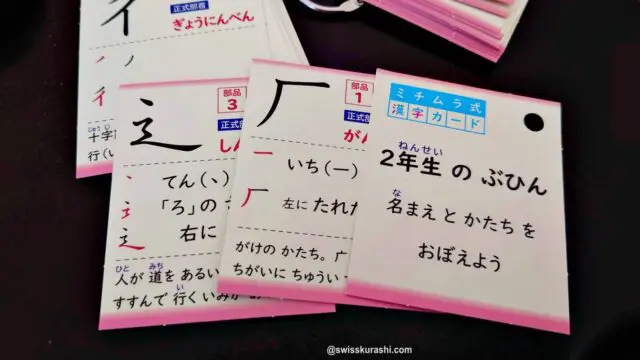 彳
正式部首
ぎょうにんべん
じゅうじ
十字
行(い
辶
部品
3
正式
しん
てん(丶)
「ろ」の
右に
ひと みち
人が 道を あるい
い
すすんで 行く いみ
厂
部品
1
正式
がん
いち(一)
左に たれた
がけの かたち。厂
ちがいに ちゅうい
ミチムラ式
漢字カード
ねんせい
2年生 の ぶひん
な
名まえ と かたち を
おぼえよう
@swisskurashi.com